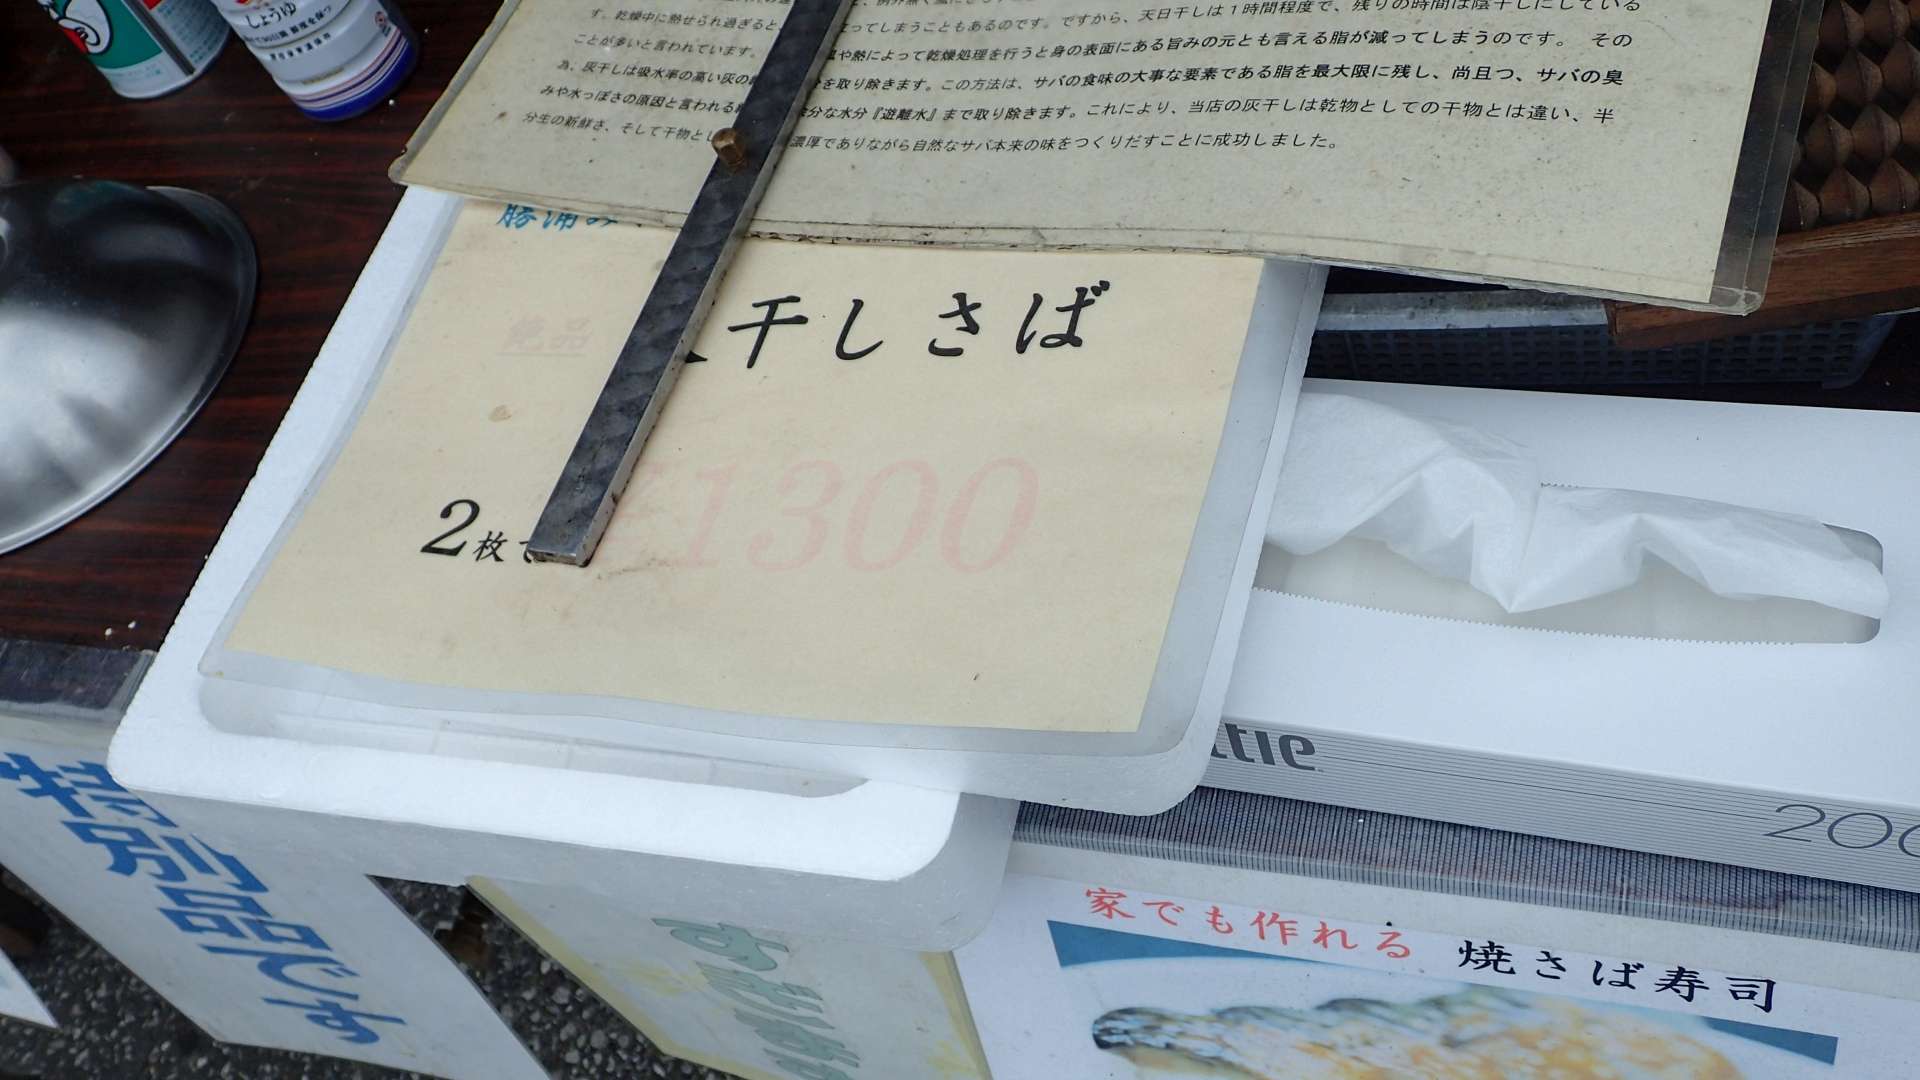 しょうゆ
す。乾燥中に熱せられ過ぎると、 ってしまうこともあるのです。ですから、天日干しは1時間程度で、残りの時間は陰干しにしている
ことが多いと言われています。 や熱によって乾燥処理を行うと身の表面にある旨みの元とも言える脂が減ってしまうのです。 その
為、灰干しは吸水率の高い灰の を取り除きます。この方法は、サバの食味の大事な要素である脂を最大限に残し、尚且つ、サバの臭
みや水っぽさの原因と言われる 分な水分『遊離水』まで取り除きます。これにより、当店の灰干しは乾物としての干物とは違い、半
分生の新鮮さ、そして干物とし 濃厚でありながら自然なサバ本来の味をつくりだすことに成功しました。
勝浦み
絶品
干しさば
2枚で ¥1300
ttie
200
特別品です
家でも作れる 焼さば寿司